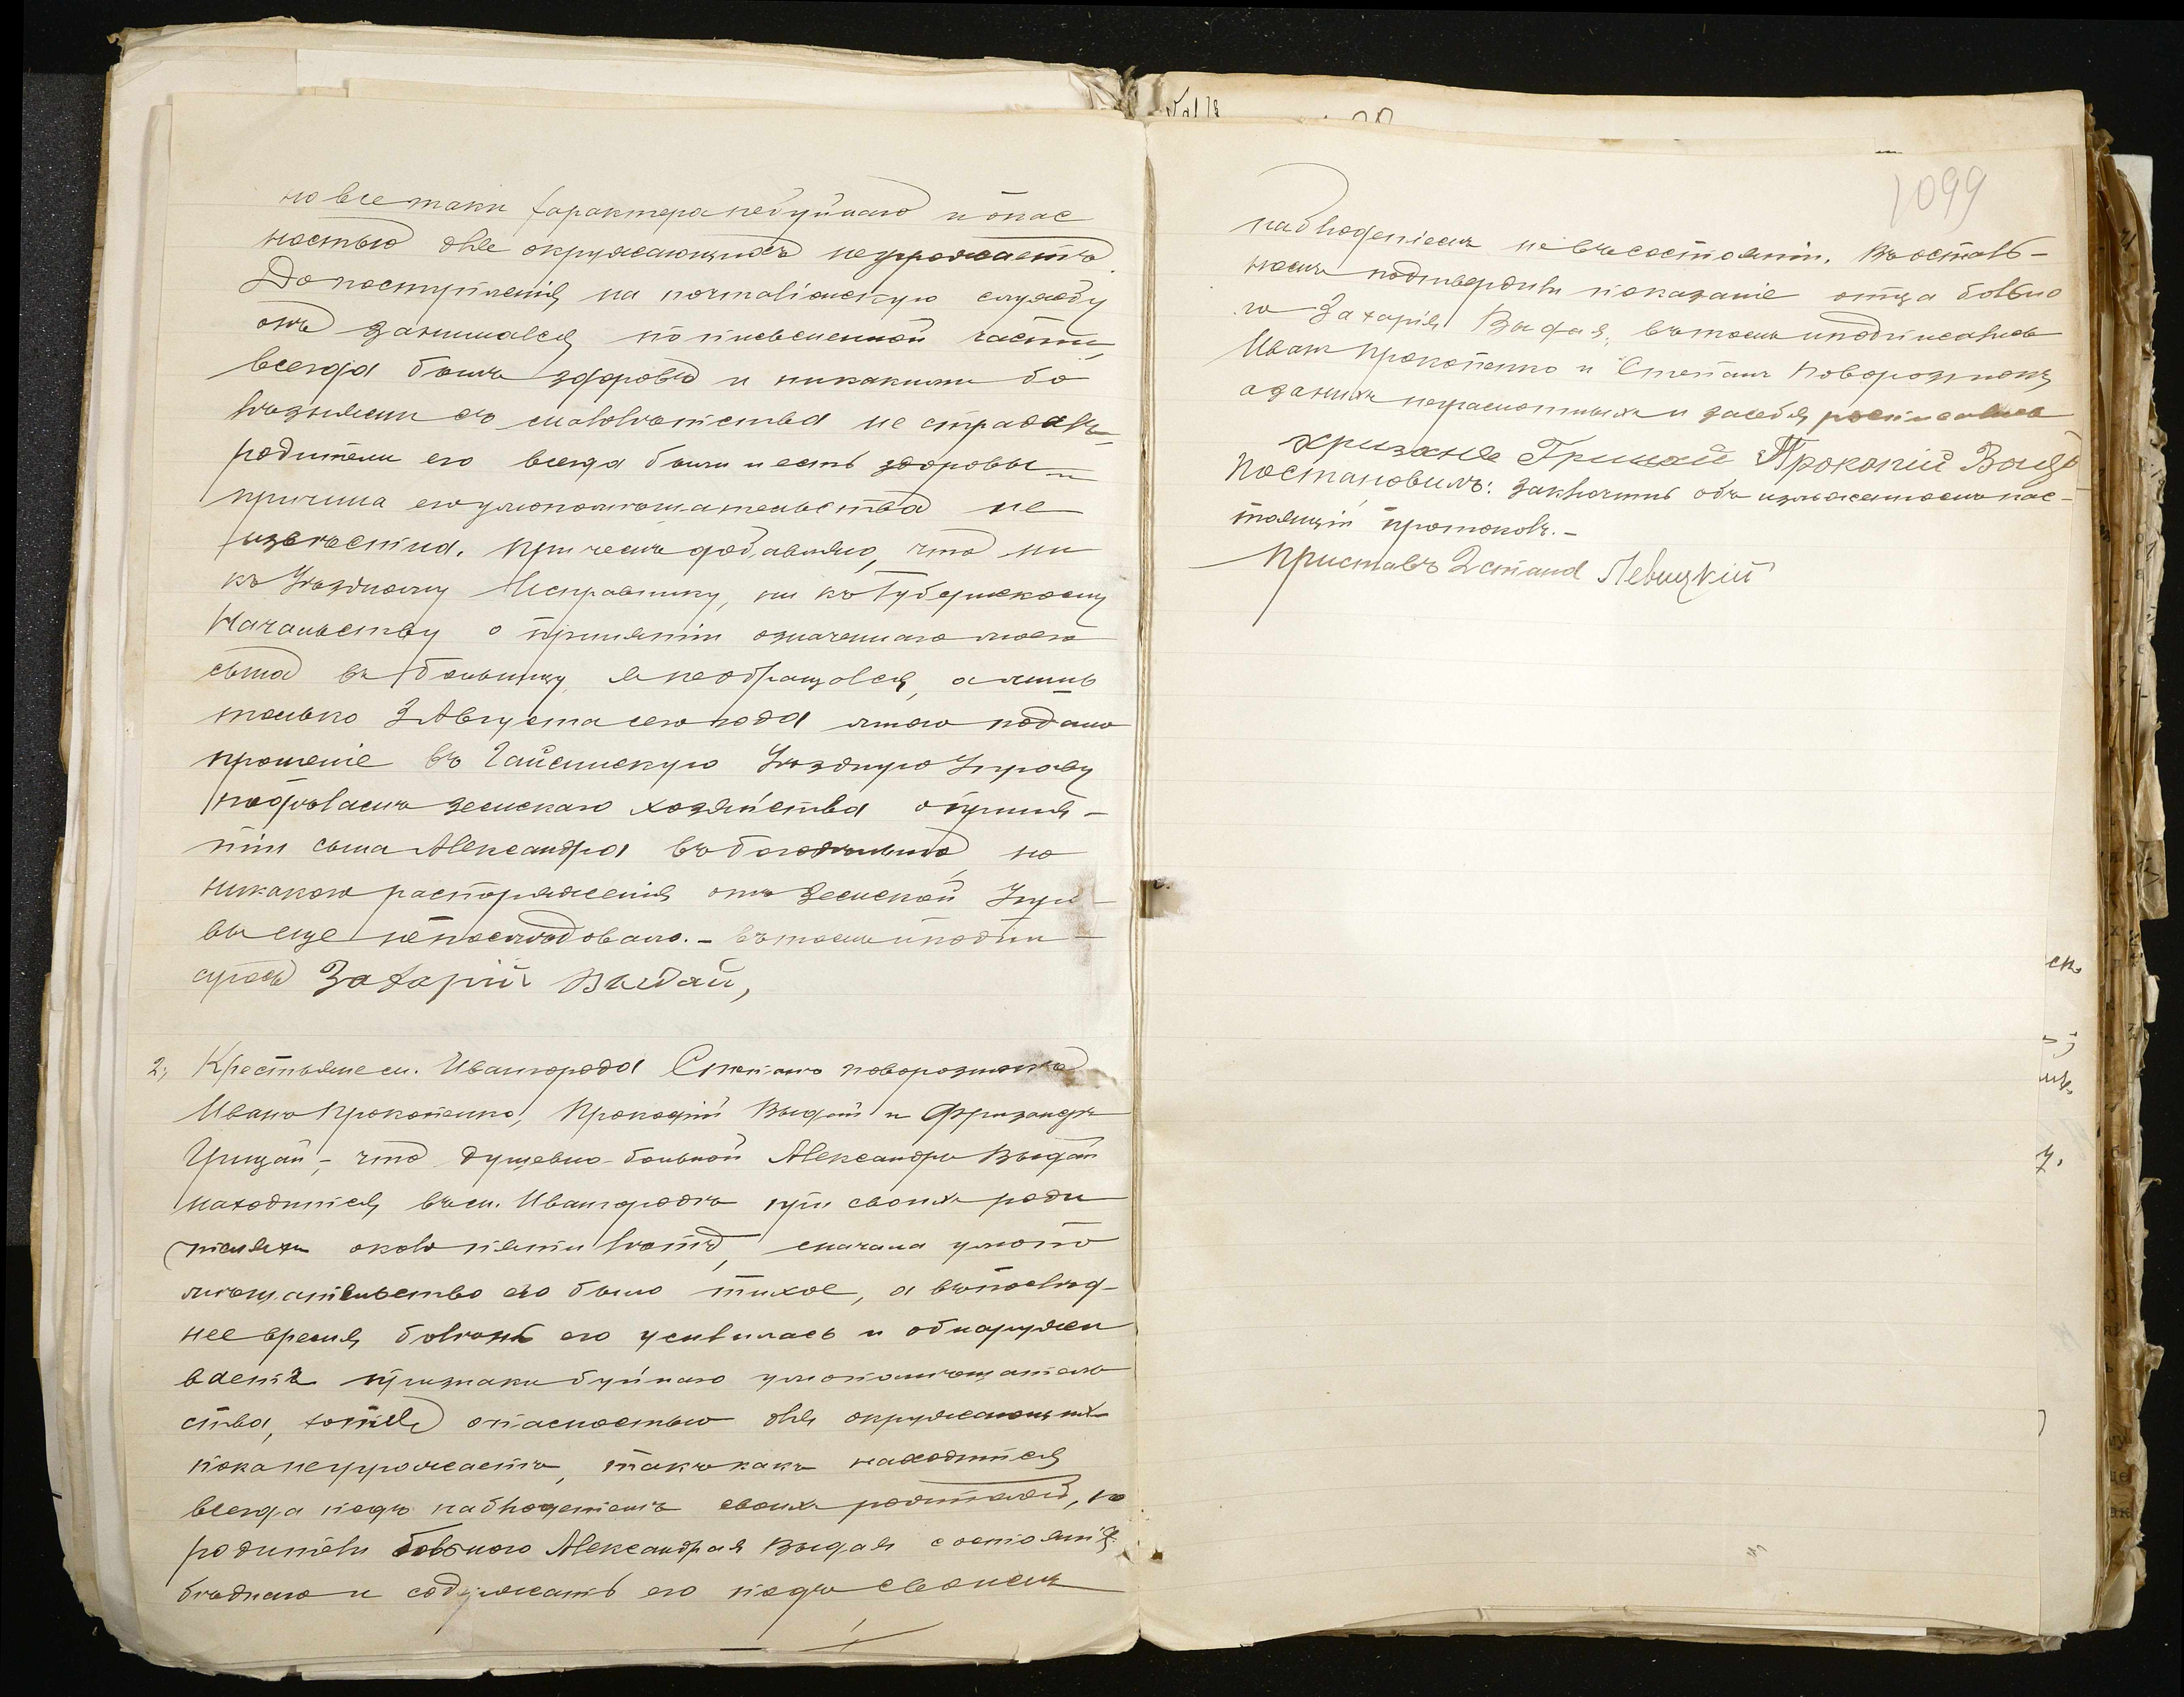 но все таки характера небуйнаго и опас
ностью для окружающихъ неугрожаетъ.
До поступленія на почталіонскую службу
онъ занимался по письменной части,
всегда былъ здоровъ и никакими бо
лѣзнями съ малолѣтства не страдалъ,
родители его всегда были и есть здоровы и
причина его умопомѣшательства не
извѣстна. При чемъ добавляю, что ни
къ Уѣздному Исправнику, ни къ Губернскому
Начальству о принятіи означеннаго моего
сына въ больницу я необращался, а лишь
только 3 Августа сего года мною подано
прошеніе въ Гайсинскую Уѣздную Управу
по дѣламъ земскаго хозяйства о приня-
тіи сына Александра въ богадѣльню, но
никакого распоряженія отъ Земской Упра-
вы еще непослѣдовало. – въ томъ и подпи-
суюсь Захарій Выдай,
2, Крестьяне м. Ивангорода Степанъ Поворознюкъ
Иванъ Прокопенко, Прокофій Выдай и Фризандръ
Грицай, – что душевно-больной Александръ Выдай
находится въ м. Ивангородѣ при своихъ роди
теляхъ около пяти лѣтъ, сначала умопо
мѣшательство его было тихое, а въ послѣд-
нее время болѣзнь его усилилась и обнаружи
ваетъ признаки буйнаго умопомѣшатель
ства, хотя опасностью для окружающихъ
пока неугрожаетъ, такъ какъ находится
всегда подъ наблюденіемъ своихъ родителей, но
родители больного Александра Выдая состоянія
бѣднаго и содержать его подъ своимъ
1099
наблюденіемъ не въ состояніи. Въ осталь-
номъ подтвердили показаніе отца больно
го Захарія Выдая, въ томъ и подписались
Иванъ Прокопенко и Степанъ Поворознюкъ,
а за нихъ неграмотныхъ и за себя росписались
Грицай Прокопій Выдай
Постановилъ: заключить объ изложенномъ нас-
тоящій протоколъ. –
Приставъ 2 стана Левицкій